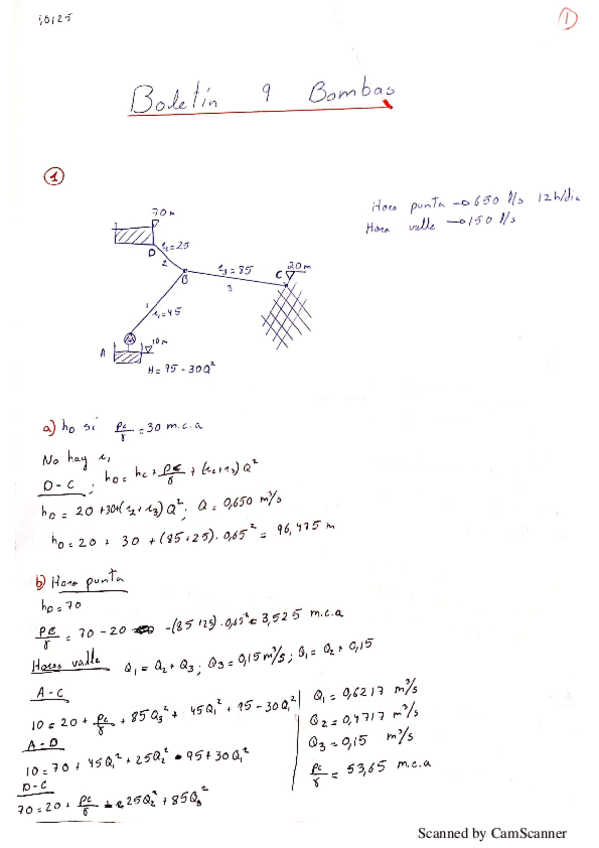 1
Boletín 9 Bombas
1
Hora punta → 650 l/s 12h/día
Hora valle → 150 l/s
70 m
D
r₂=25
2
B
r₃=85
3
C
20 m
1
r₁=45
A
10m
H = 95 - 30Q²
a) h₀ si pc/γ = 30 m.c.a
No hay r₁
D-C ; h₀ = hc + pc/γ + (r₂+r₃) Q²
h₀ = 20 +30+(r₂+r₃)Q² ; Q = 0,650 m³/s
h₀ = 20 + 30 + (85+25) · 0,65² = 96,475 m
b) Hora punta
h₀ = 70
pc/γ = 70 - 20 -(85+25)·0,65² = 3,525 m.c.a
Horas valle Q₁ = Q₂ + Q₃ ; Q₃ = 0,15 m³/s ; Q₁ = Q₂ + 0,15
A-C
10 = 20 + pc/γ + 85Q₃² + 45Q₁² + 95 - 30Q₁²
A-D
10 = 70 + 45Q₁² + 25Q₂² - 95 + 30Q₁²
D-C
70 = 20 + pc/γ - 25Q₂² + 85Q₃²
Q₁ = 0,6217 m³/s
Q₂ = 0,4717 m³/s
Q₃ = 0,15 m³/s
pc/γ = 53,65 m.c.a
Scanned by CamScanner